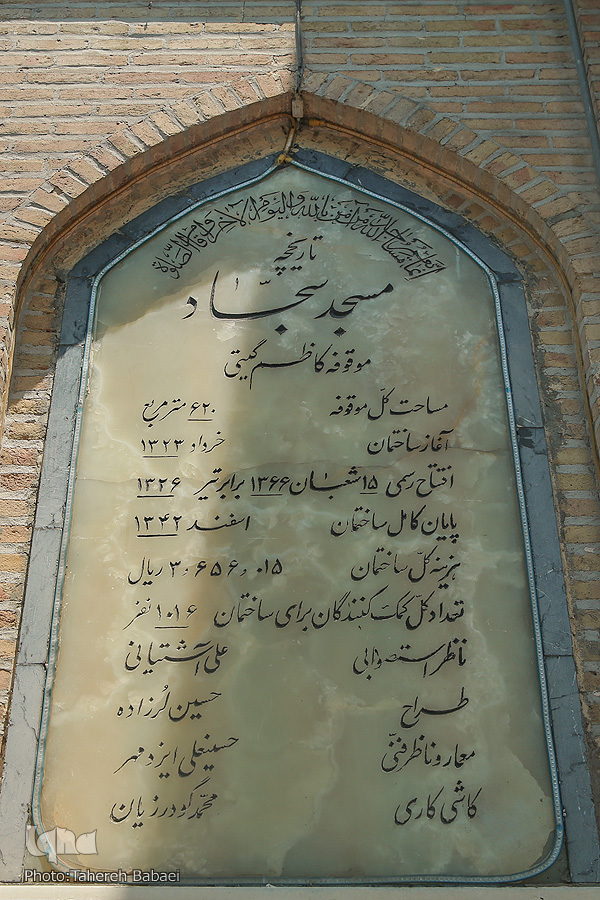 إنما يعمر مساجد الله من آمن بالله واليوم الآخر وأقام الصلوة
تاریخچه
مسجد سجّاد
موقوفه کاظم گیتی
مساحت کلّ موقوفه ۶۲۰ متر مربع
آغاز ساختمان خرداد ۱۳۲۳
افتتاح رسمی ۱۵ شعبان ۱۳۶۶ برابر تیر ۱۳۲۶
پایان کامل ساختمان اسفند ۱۳۴۲
هزینه کلّ ساختمان ۳٫۶۵۶٫۰۱۵ ریال
تعداد کلّ کمک کنندگان برای ساختمان ۱۰۱۶ نفر
ناظر استصوابی علی آشتیانی
طراح حسین لرزاده
معمار و ناظر فنّی حسینعلی ایزدمهر
کاشی کاری محمّد گودرزیان
iqna
Photo:Tahereh Babaei